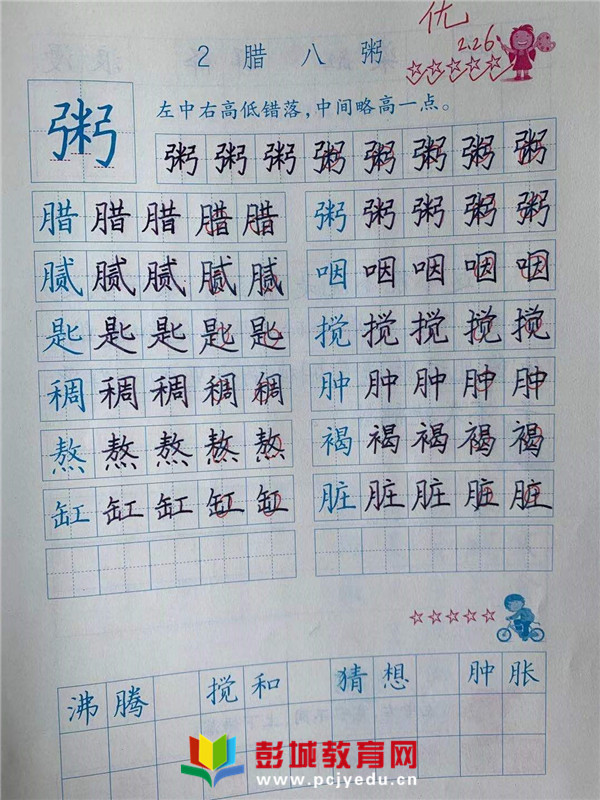 优
2.26
2 腊 八 粥
粥 左中右高低错落,中间略高一点。
粥 粥 粥 粥 粥 粥 粥 粥
腊 腊 腊 腊 腊 粥 粥 粥 粥 粥
腻 腻 腻 腻 腻 咽 咽 咽 咽 咽
匙 匙 匙 匙 匙 搅 搅 搅 搅 搅
稠 稠 稠 稠 稠 肿 肿 肿 肿 肿
熬 熬 熬 熬 熬 褐 褐 褐 褐 褐
缸 缸 缸 缸 缸 脏 脏 脏 脏 脏
沸 腾 搅 和 猜 想 肿 胀
彭城教育网
www.pcjyedu.cn